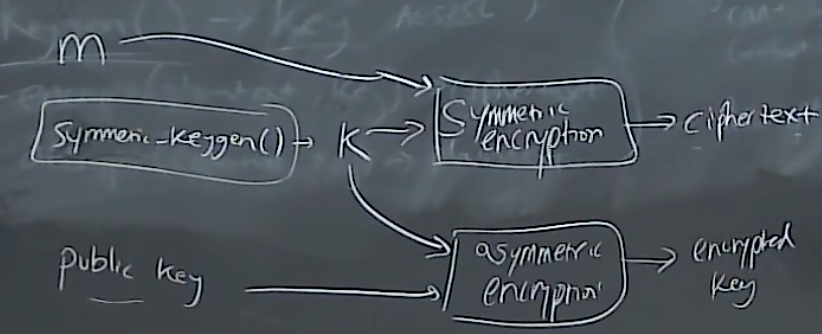 m
Symmetric-Keygen()
K
Symmetric
encryption
ciphertext
public key
asymmetric
encryption
encrypted
key